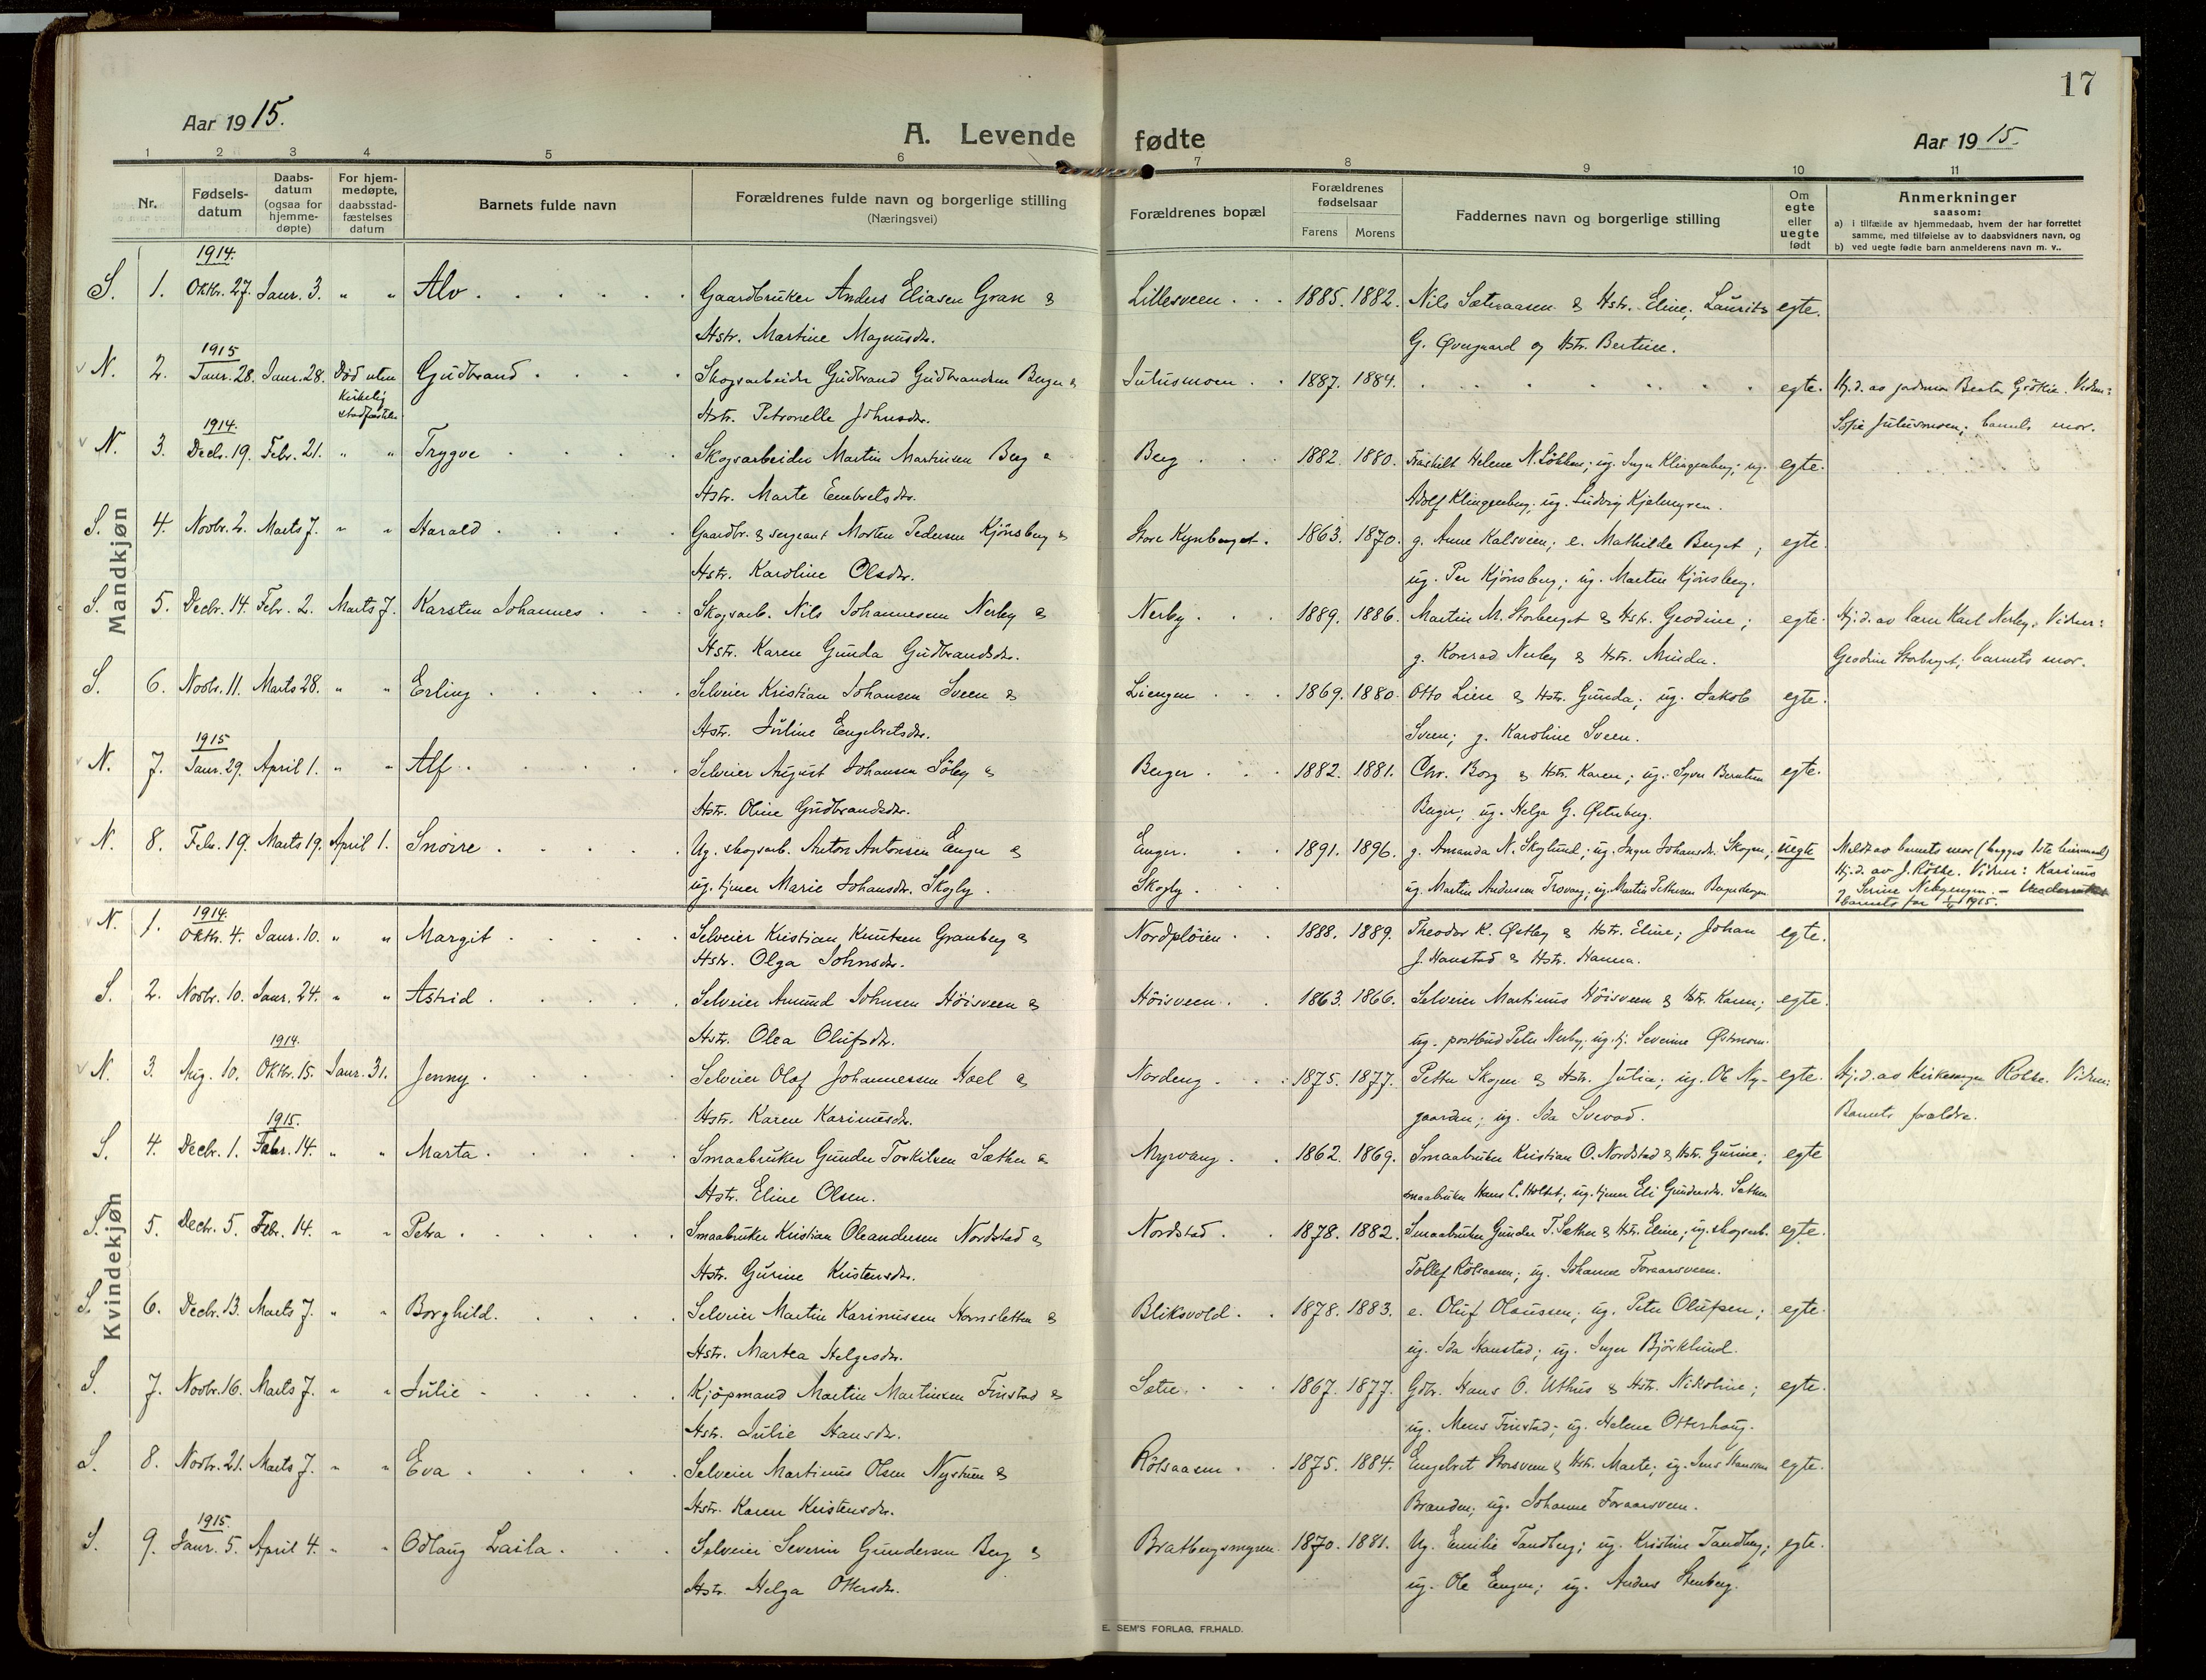 17
Aar 1915.
A. Levende fødte
Aar 1915.
1 2 3 4 5 6 7 8 9 10 11
Nr.
Fødsels-
datum
Daabs-
datum
(ogsaa for
hjemme-
døpte)
For hjem-
medøpte,
daabsstad-
fæstelses
datum
Barnets fulde navn
Forældrenes fulde navn og borgerlige stilling
(Næringsvei)
Forældrenes bopæl
Forældrenes
fødselsaar
Farens Morens
Faddernes navn og borgerlige stilling
Om
egte
eller
uegte
født
Anmerkninger
saasom:
a) i tilfælde av hjemmedaab, hvem der har forrettet
samme, med tilføielse av to daabsvidners navn, og
b) ved uegte fødte barn anmelderens navn m. v..
Mandkjøn
1914.
S. 1. Oktbr. 27. Janr. 3. " " Alv . Gaardbruker Anders Eliasen Gran & Lillesveen . 1885. 1882. Nils Sætraasen & Hstr. Eline; Laurits egte.
Hstr. Martine Magnusdr. G. Øvergaard og Hstr. Bertine.
1915
N. 2. Janr. 28. Janr. 28. Død uten Gudbrand . Skogsarbeider Gudbrand Gudbrandsen Berger & Julusmoen . 1887. 1884. egte. Hj.d. av jordmor Beate Vidner:
kirkelig
stadfæstelse Hstr. Petronelle Johnsdr. Sofie Julusmoen; barnets mor.
1914.
N. 3. Decbr. 19. Febr. 21. " " Trygve . Skogsarbeider Martin Martinsen Berg & Berg . 1882. 1880. Fraskilt Helene N. Løkken; ug. Inga Klingenberg; ug. egte.
Hstr. Marte Embretsdr. Adolf Klingenberg; ug. Ludvig Kjelmyren.
S. 4. Novbr. 2. Marts 7. " " Harald . Gaardbr. & sergeant Morten Pedersen Kjønsberg & Store Kynberget. 1863. 1870. g. Anne Kalsveen; e. Mathilde Berget; egte.
Hstr. Karoline Olsdr. ug. Per Kjønsberg; ug. Martin Kjønsberg.
S. 5. Decbr. 14. Febr. 2. Marts 7. Karsten Johannes . Skogsarb. Nils Johannesen Nerby & Nerby . 1889. 1886. Martin M. Storberget & Hstr. Geodine; egte. Hj.d. av lærer Karl Nerby. Vidner:
Hstr. Karen Gunda Gudbrandsdr. g. Konrad Nerby & Hstr. Minda. Geodine Storberget; barnets mor.
S. 6. Novbr. 11. Marts 28. " " Erling . Selveier Kristian Johansen Sveen & Liengen . 1869. 1880. Otto Lien & Hstr. Gunda; ug. Jakob egte.
Hstr. Juline Engebretsdr. Sveen; g. Karoline Sveen.
1915
N. 7. Janr. 29. April 1. " " Alf . Selveier August Johansen Søby & Berger . 1882. 1881. Chr. Borg & Hstr. Karen; ug. Syver Berntsen egte.
Hstr. Oline Gudbrandsdr. Berger; ug. Helga G. Østerberg.
N. 8. Febr. 19. Marts 19. April 1. Snorre . Ug. skogsarb. Anton Antonsen Enger & Enger. 1891. 1896. g. Amanda N. Skoglund; ug. Inger Johansdr. Skogen; uegte Meldt av barnets mor (begges 1ste leiermaal)
ug. tjener Marie Johansdr. Skogly . Skogly . ug. Martin Andersen ug. Martin Pettersen Bergerskogen Hj.d. av J. Rølke. Vidner: Karinus
og Serine
barnets far 1915.
Kvindekjøn
1914.
N. 1. Oktbr. 4. Janr. 10. " " Margit . Selveier Kristian Knutsen Granberg & Nordpløien . 1888. 1889. Theodor K. Østby & Hstr. Eline; Johan egte.
Hstr. Olga Johnsdr. J. Hanstad & Hstr. Hanna.
S. 2. Novbr. 10. Janr. 24. " " Astrid . Selveier Amund Johnsen Høisveen & Høisveen . 1863. 1866. Selveier Martinus Høisveen & Hstr. Karen; egte.
Hstr. Olea Olufsdr. ug. postbud Peter Nerby; ug. tj. Severine Østmoen.
1914.
N. 3. Aug. 10. Oktbr. 15. Janr. 31. Jenny . Selveier Olaf Johannessen Hoel & Nordeng . 1875. 1877. Petter Skogen & Hstr. Julia; ug. Ole Ny- egte. Hj.d. av kirkesanger Rølke. Vidner:
Hstr. Karen Karinusdr. gaarden; ug. Ida Svevad. Barnets forældre.
1915.
S. 4. Decbr. 1. Febr. 14. " " Marta . Smaabruker Gunder Torkilsen Sæther & Myrvang . 1862. 1869. Smaabruker Kristian O. Nordstad & Hstr. Gurine; egte
Hstr. Eline Olsen. smaabruker Hans C. Holtet; ug. tjener Eli Gundersdr. Sæther
S. 5. Decbr. 5. Febr. 14. " " Petra . Smaabruker Kristian Oleandersen Nordstad & Nordstad . 1878. 1882. Smaabruker Gunder T. Sæther & Hstr. Eline; ug. skogsarb. egte.
Hstr. Gurine Kristensdr. Tollef Kølsaasen; ug. Johanne Foraarsveen.
S. 6. Decbr. 13. Marts 7. " " Borghild . Selveier Martin Karinussen Hornsletten & Bliksvold . 1878. 1883. e. Oluf Olaussen; ug. Peter Olufsen; egte.
Hstr. Martea Helgesdr. ug. Ida Hanstad; ug. Inger Bjørklund.
S. 7. Novbr. 16. Marts 7. " " Julie . Kjøpmand Martin Martinsen Finstad & Sætre . 1867. 1877. Gdbr. Hans O. Uthus & Hstr. Nikoline; egte.
Hstr. Julie Hansdr. ug. Mens Finstad; ug. Helene Otterhaug.
S. 8. Novbr. 21. Marts 7. " " Eva . Selveier Martinus Olsen Nystuen & Kølsaasen . 1875. 1884. Engebret Storsveen & Hstr. Marte; ug. Jens Hanssen egte.
Hstr. Karen Kristensdr. Branden; ug. Johanne Foraarsveen.
1915.
S. 9. Janr. 5. April 4. " " Odlaug Laila . Selveier Severin Gundersen Berg & Bratbergsmyren . 1870. 1881. Ug. Emilie Tandberg; ug. Kristine Tandberg; egte.
Hstr. Helga Ottersdr. ug. Ole Engen; ug. Anders Stenberg.
E. SEM'S FORLAG, FR.HALD.